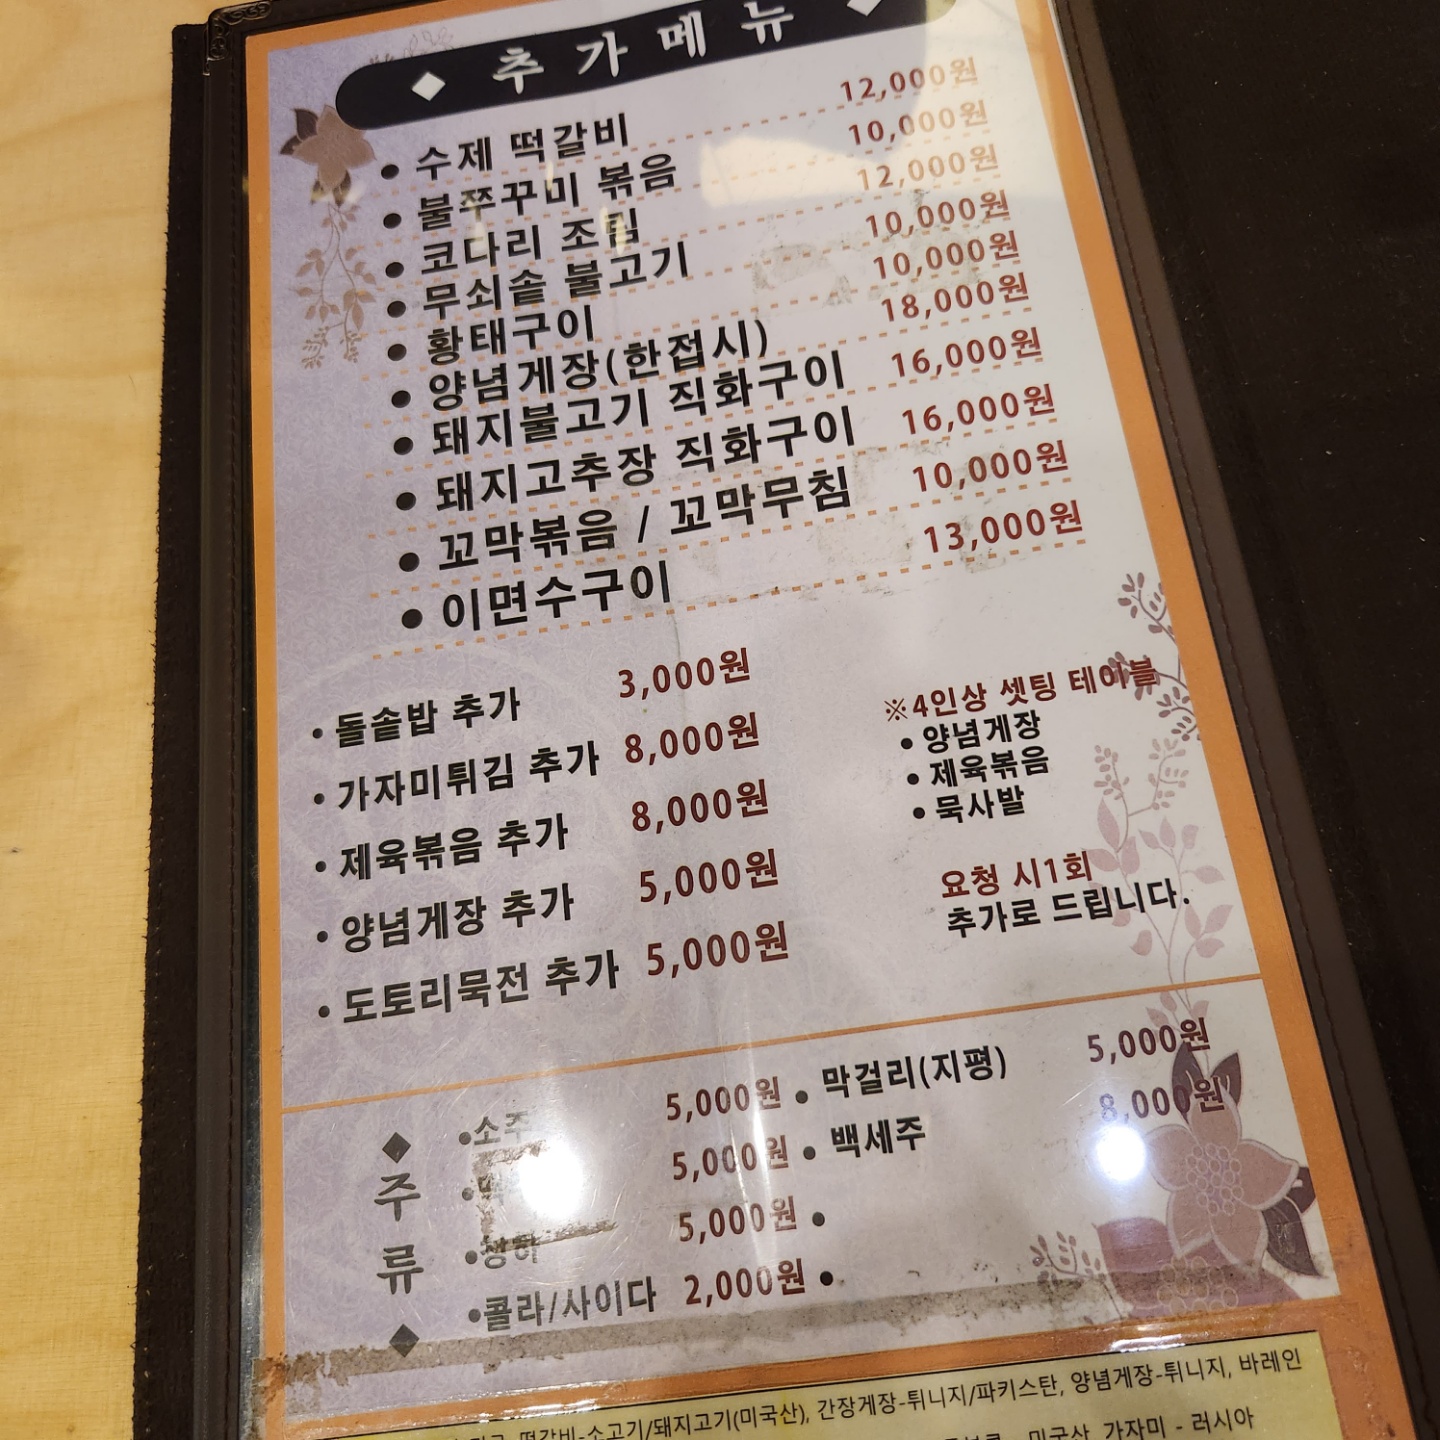 ◆ 추가메뉴 ◆
• 수제 떡갈비 12,000원
• 불쭈꾸미 볶음 10,000원
• 코다리 조림 12,000원
• 무쇠솥 불고기 10,000원
• 황태구이 10,000원
• 양념게장(한접시) 18,000원
• 돼지불고기 직화구이 16,000원
• 돼지고추장 직화구이 16,000원
• 꼬막볶음 / 꼬막무침 10,000원
• 이면수구이 13,000원
• 돌솥밥 추가 3,000원
• 가자미튀김 추가 8,000원
• 제육볶음 추가 8,000원
• 양념게장 추가 5,000원
• 도토리묵전 추가 5,000원
※4인상 셋팅 테이블
• 양념게장
• 제육볶음
• 묵사발
요청 시1회
추가로 드립니다.
◆ 주류 ◆
•소주 5,000원
5,000원
5,000원
•콜라/사이다 2,000원
• 막걸리(지평) 5,000원
• 백세주 8,000원
떡갈비-소고기/돼지고기(미국산), 간장게장-튀니지/파키스탄, 양념게장-튀니지, 바레인
미국산, 가자미 - 러시아